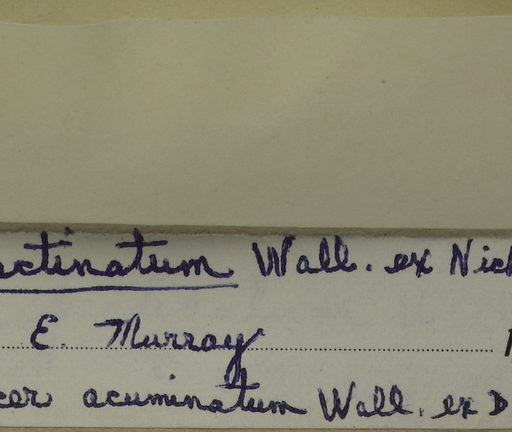 ctinatum Wall. ex Nich
E. Murray
cer acuminatum Wall. ex D